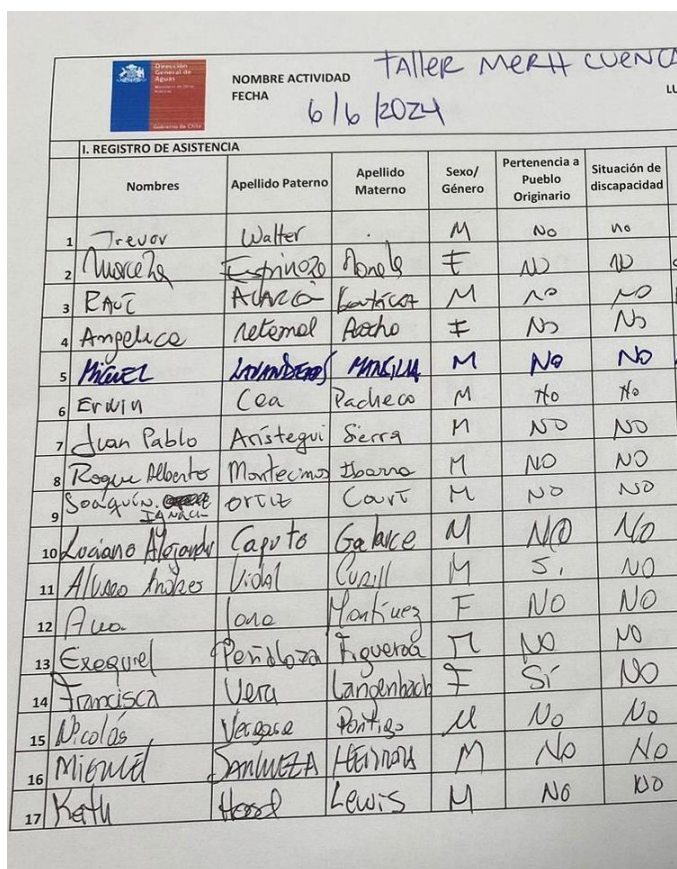 Dirección
General de
Aguas
Gobierno de Chile
NOMBRE ACTIVIDAD TAllER MERH CUENCA
FECHA 6/6/2024
LU
I. REGISTRO DE ASISTENCIA
Nombres Apellido Paterno Apellido Materno Sexo/Género Pertenencia a Pueblo Originario Situación de discapacidad
1 Trevor Walter . M No no
2 Marcela Espinoza F NO NO
3 RAUL M no no
4 Angelica retamal F No No
5 MiGUEL MANSILLA M No No
6 ErWin Cea Pacheco M No No
7 Juan Pablo Arístegui Sierra M NO NO
8 Roque Alberto Montecinos Ibarra M NO NO
9 Joaquín. IGNACIO ORTIZ CourT M NO NO
10 Luciano Alejandro Caputo Galarce M NO No
11 Alvaro Andres Vidal Curill M Si NO
12 Ana Martínez F NO NO
13 Exequiel Peñaloza Figueroa M NO NO
14 Francisca Vera Langenbach F Sí NO
15 Nicolás Vergara Pontigo M No No
16 MIGUEL SANHUEZA M No No
17 Keith Lewis M NO NO